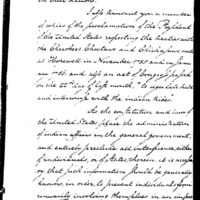 I also transmit you a number
of copies of the proclamation of the President
of the United States respecting the treaties with
the Cherokees Choctaws and Chickasaws made
at Hopewell in November 1785 and in Janu
1786, and also an act of Congress passed
on the 22d of last month, to regulate trade
and intercourse with the indian tribes.
As the constitution and laws of
the United States place the administration
of indian affairs in the general government,
and entirely preclude all interference either
of individuals, or of States therein, it is necessa
that such information should be generally
known, in order to prevent individuals from
unwarily involving themselves in an improper